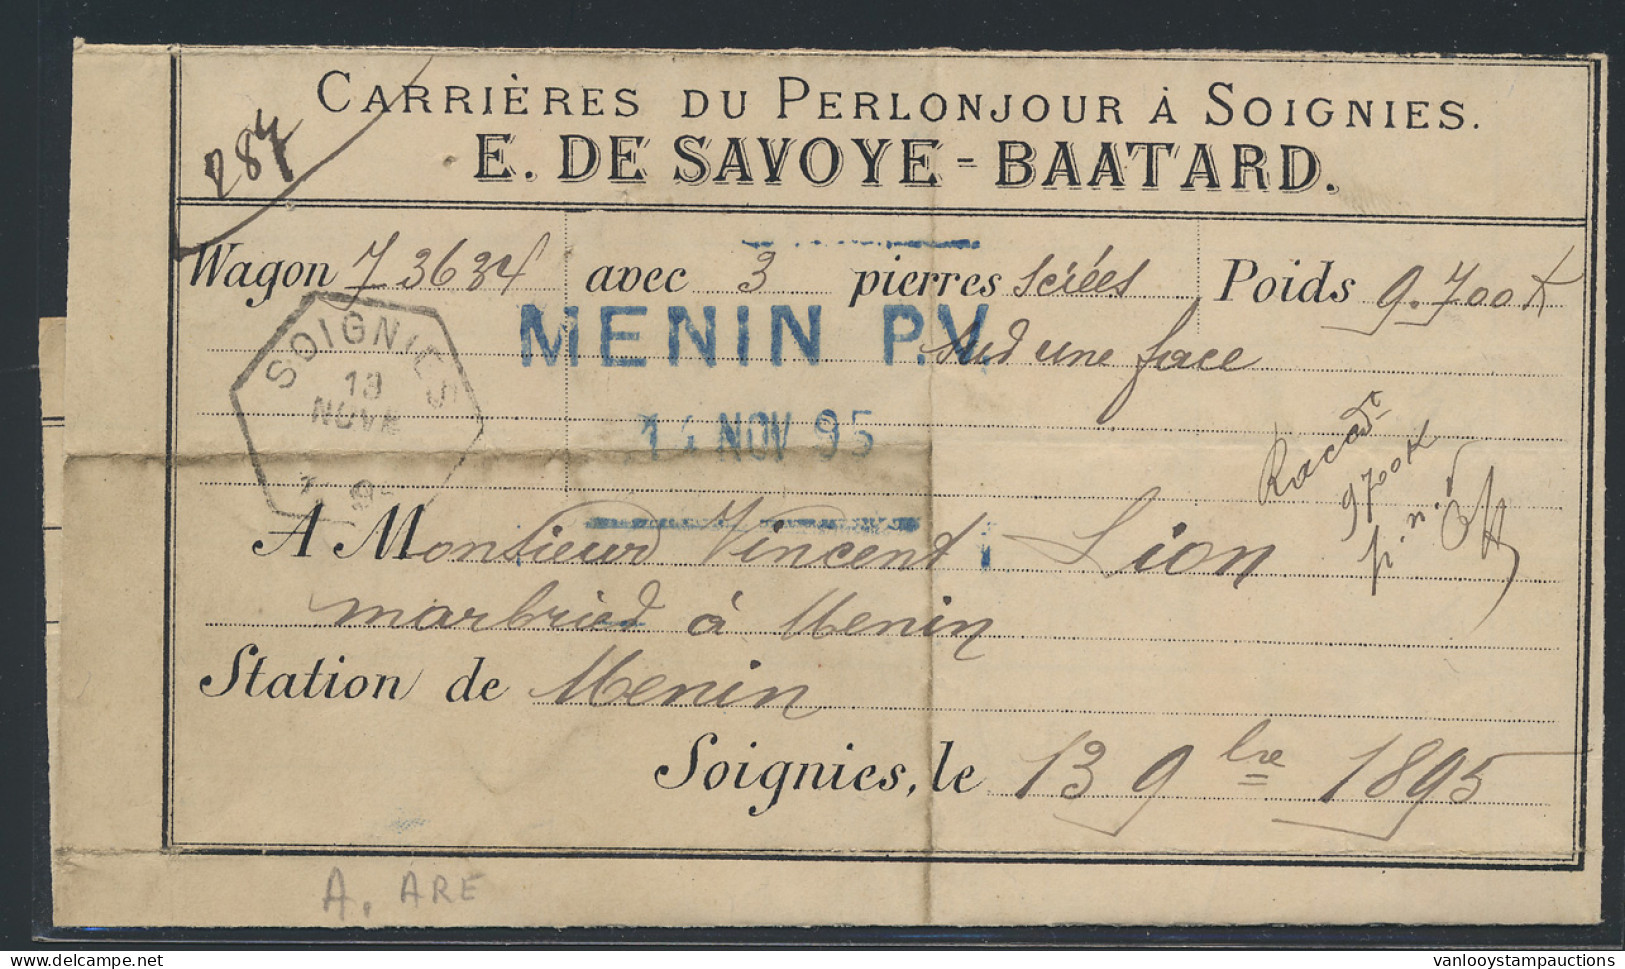 CARRIÈRES DU PERLONJOUR À SOIGNIES.
E. DE SAVOYE-BAATARD.
284
Wagon 73634 avec 3 pierres sciées Poids 9.700 K
MENIN P.V.
sur une face
SOIGNIES
13
NOVE
14 NOV 95
9700 K
A Monsieur Vincent Lion
marbrier à Menin
Station de Menin
Soignies, le 13 9bre 1895
A. ARE
vanlooystampauctions